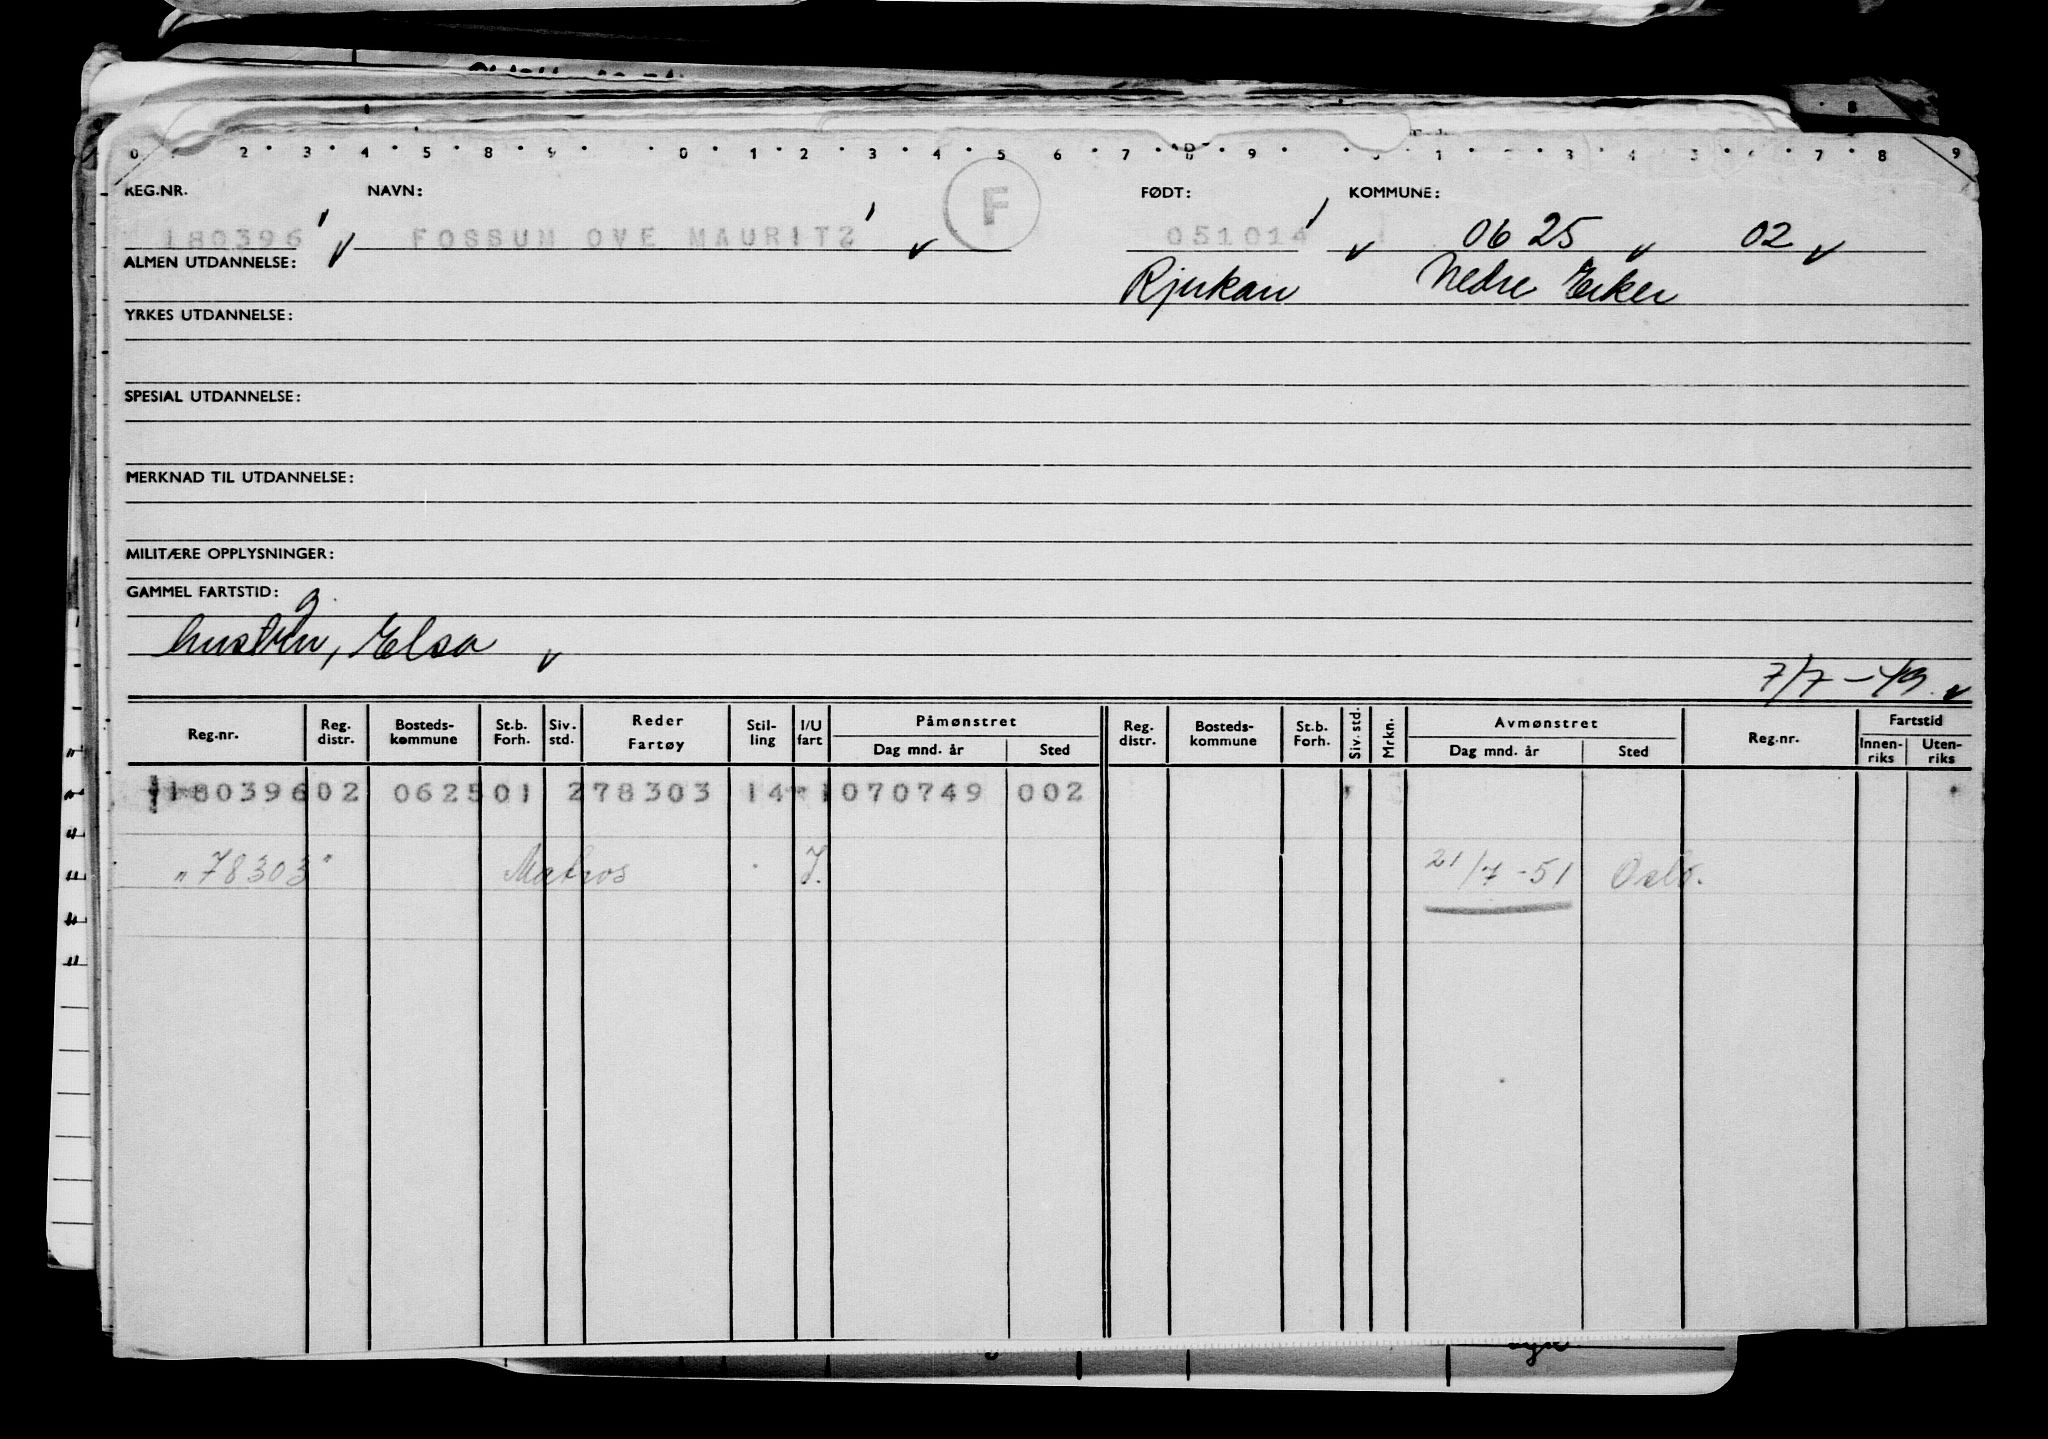 0 2 3 4 5 8 9 0 1 2 3 4 5 6 7 8 9 1 3 4 5 7 8 9
REG.NR. NAVN: F FØDT: KOMMUNE:
180396 FOSSUM OVE MAURITZ 051014 0625 02
ALMEN UTDANNELSE: Rjukan Nedre Eiker
YRKES UTDANNELSE:
SPESIAL UTDANNELSE:
MERKNAD TIL UTDANNELSE:
MILITÆRE OPPLYSNINGER:
GAMMEL FARTSTID: g.
hustru, Elsa
7/7-49
Reg.nr. Reg. distr. Bosteds-kommune St.b. Forh. Siv. std. Reder Fartøy Stil-ling I/U fart Påmønstret Dag mnd. år Sted Reg. distr. Bosteds-kommune St.b. Forh. Siv. std. Mrkn. Avmønstret Dag mnd. år Sted Reg.nr. Fartstid Innen-riks Uten-riks
180396 02 0625 01 2 78303 14 1 070749 002
"78303" Matros I. 21/7-51 Oslo.